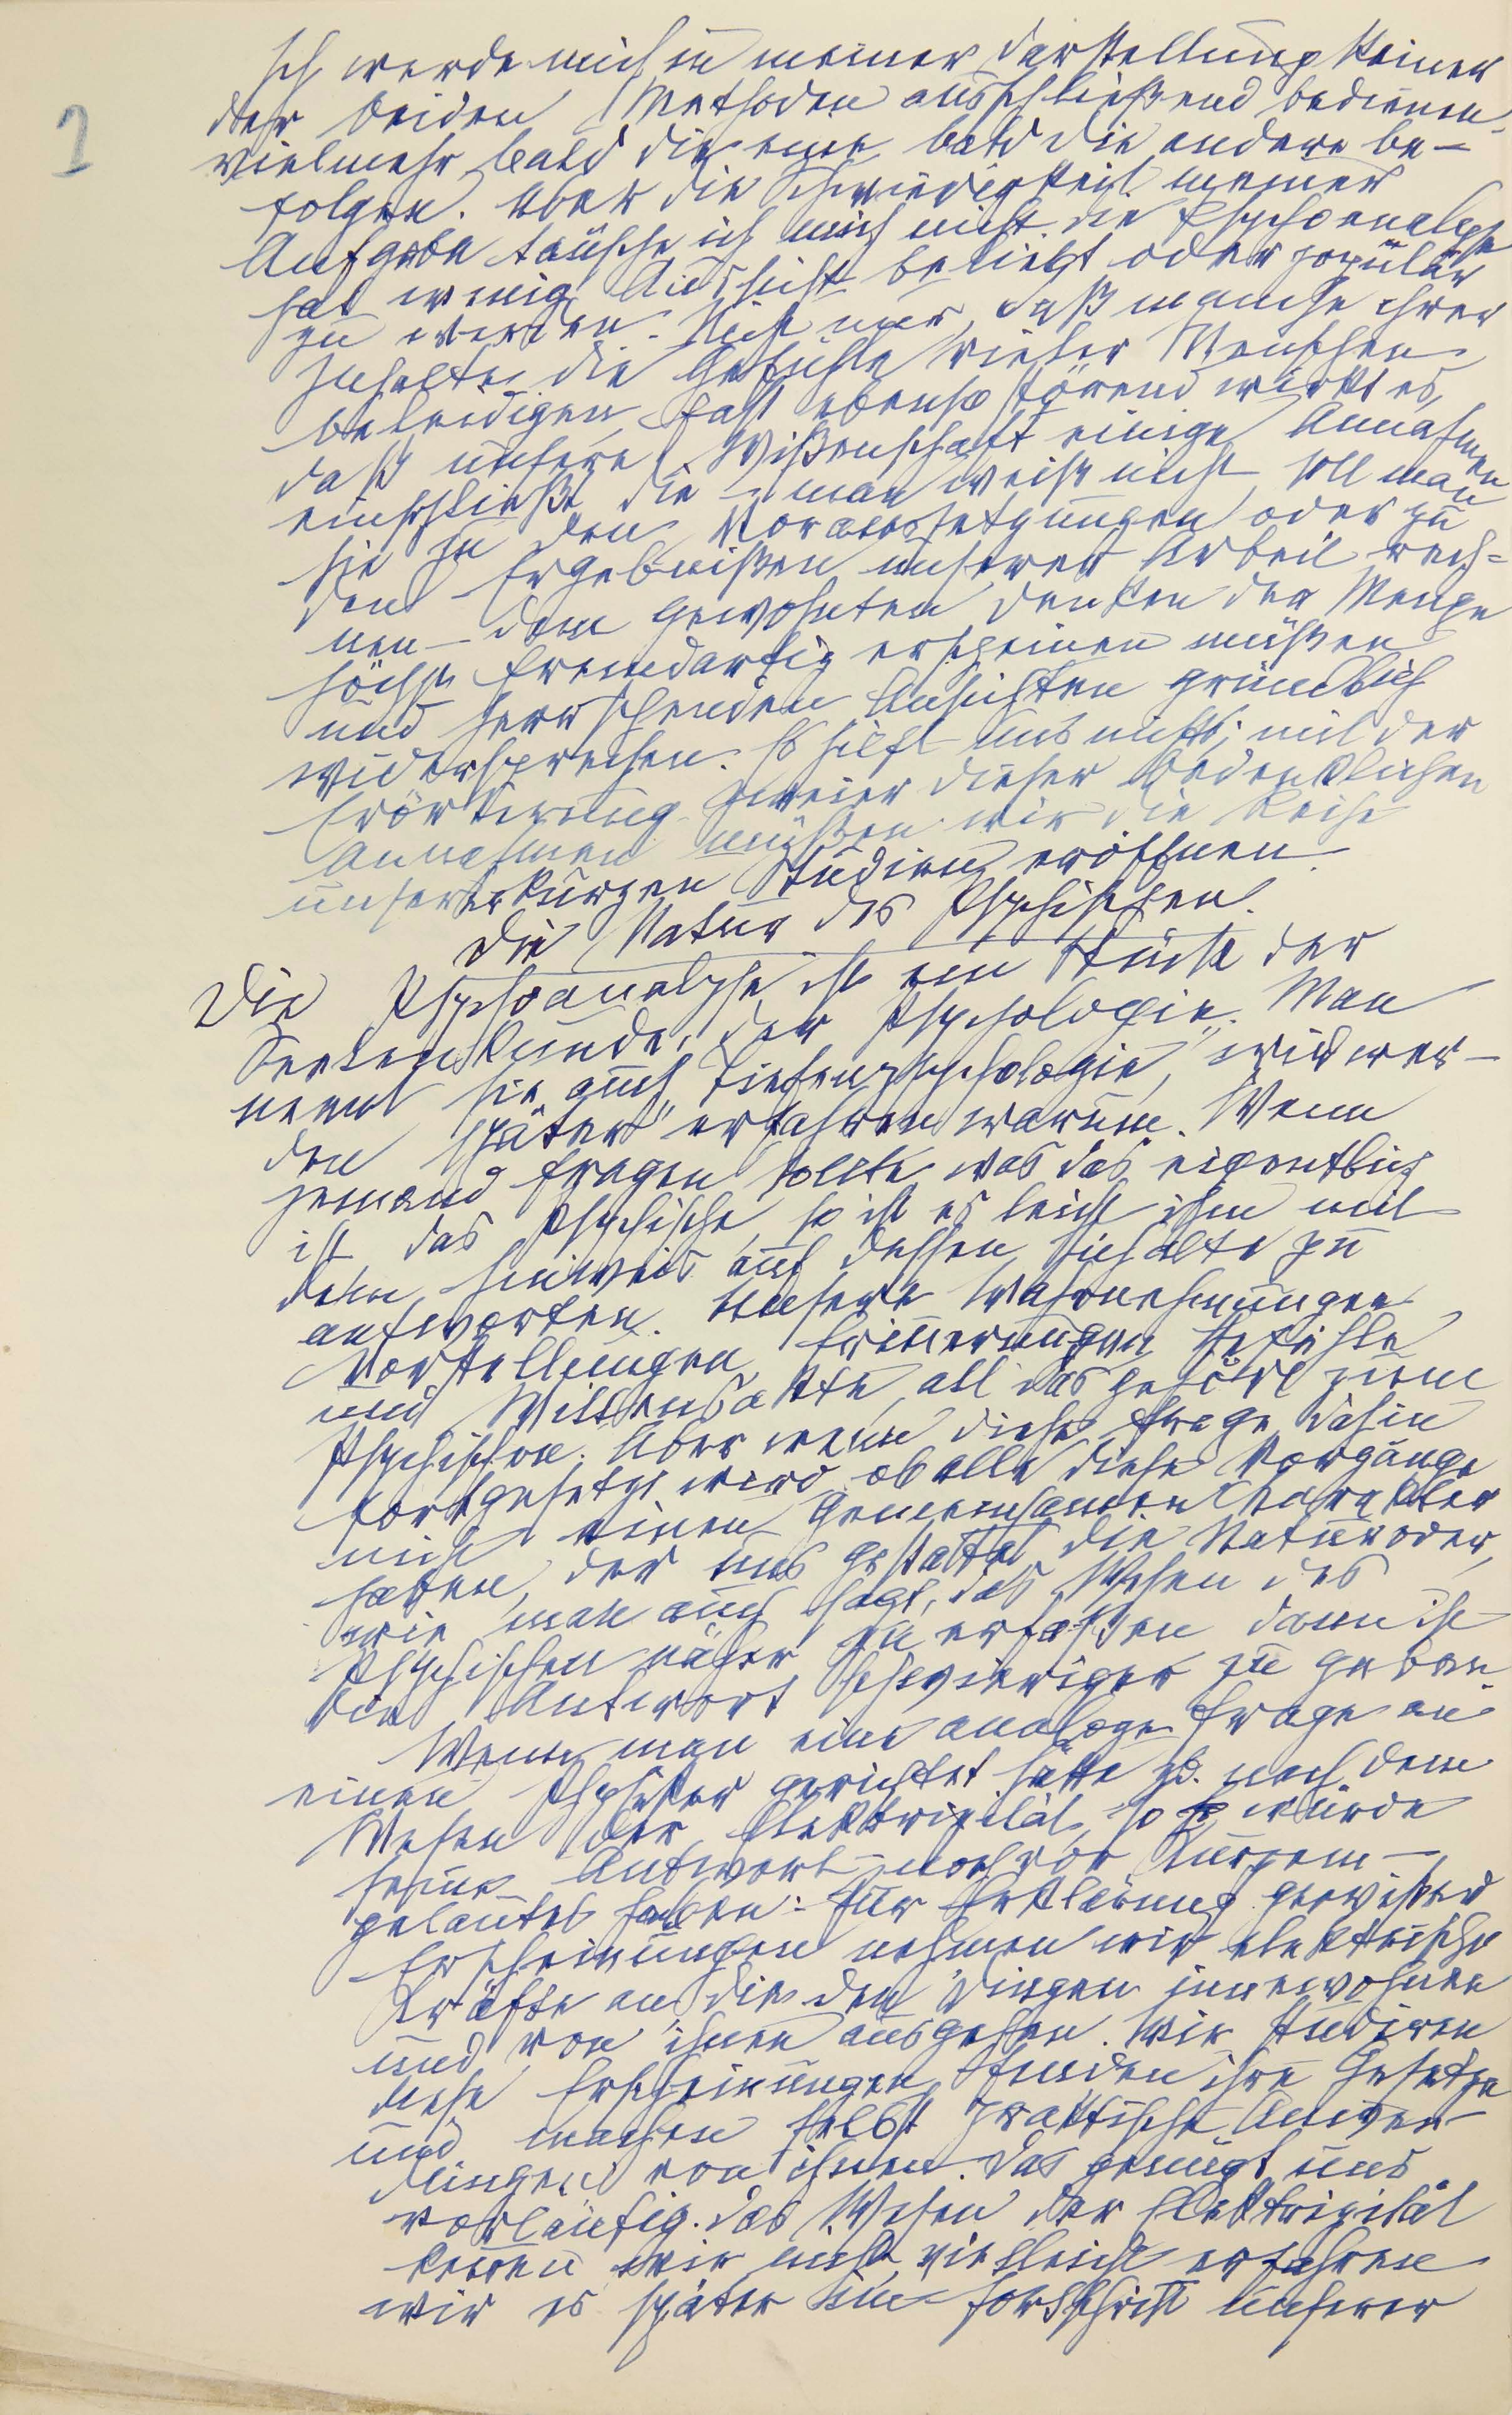 2
Ich werde mich in meiner Darstellung keiner
der beiden Methoden ausschließend bedienen,
vielmehr bald die eine bald die andere be-
folgen. Über die Schwierigkeit meiner
Aufgabe täusche ich mich nicht. Die Psychoanalyse
hat wenig Aussicht beliebt oder populär
zu werden. Nicht nur, daß manche ihrer
Inhalte die Gefühle vieler Menschen
beleidigen, fast ebenso störend wirkt es,
daß unsere Wißenschaft einige Annahmen
einschließt, die – man weiß nicht, soll man
sie zu den Voraussetzungen oder zu
den Ergebnißen unserer Arbeit rech-
nen – dem gewohnten Denken der Menge
höchst fremdartig erscheinen müßen
und herrschenden Ansichten gründlich
widersprechen. Es hilft uns nichts; mit der
Erörterung zweier dieser bedenklichen
Annahmen müßen wir die Reihe
unserer kurzen Studien eröffnen
Die Natur des Psychischen.
Die Psychoanalyse ist ein Stück der
Seelenkunde, der Psychologie. Man
nennt sie auch „Tiefenpsychologie", wir wer-
den später erfahren warum. Wenn
jemand fragen sollte was das eigentlich
ist, das Psychische, so ist es leicht ihm mit
dem Hinweis auf dessen Inhalte zu
antworten. Unsere Wahrnehmungen
Vorstellungen, Erinnerungen, Gefühle
und Willensakte, all das gehört zum
Psychischen. Aber wenn diese Frage dahin
fortgesetzt wird, ob alle diese Vorgänge
nicht einen gemeinsamen Charakter
haben, der uns gestattet die Natur oder,
wie man auch sagt, das Wesen des
Psychischen näher zu erfaßen dann ist
die Antwort schwieriger zu geben.
Wenn man eine analoge Frage an
einen Physiker gerichtet hätte zb. nach dem
Wesen der Elektrizität, so würde
seine Antwort – noch vor Kurzem –
gelautet haben: Zur Erklärung gewißer
Erscheinungen nehmen wir elektrische
Kräfte an die den Dingen innewohnen
und von ihnen ausgehen. Wir studiren
diese Erscheinungen, finden ihre Gesetze
und machen selbst praktische Anwen-
dungen von ihnen. Das genügt uns
vorläufig. Das Wesen der Elektrizität
kennen wir nicht, vielleicht erfahren
wir es später im Fortschritt unserer